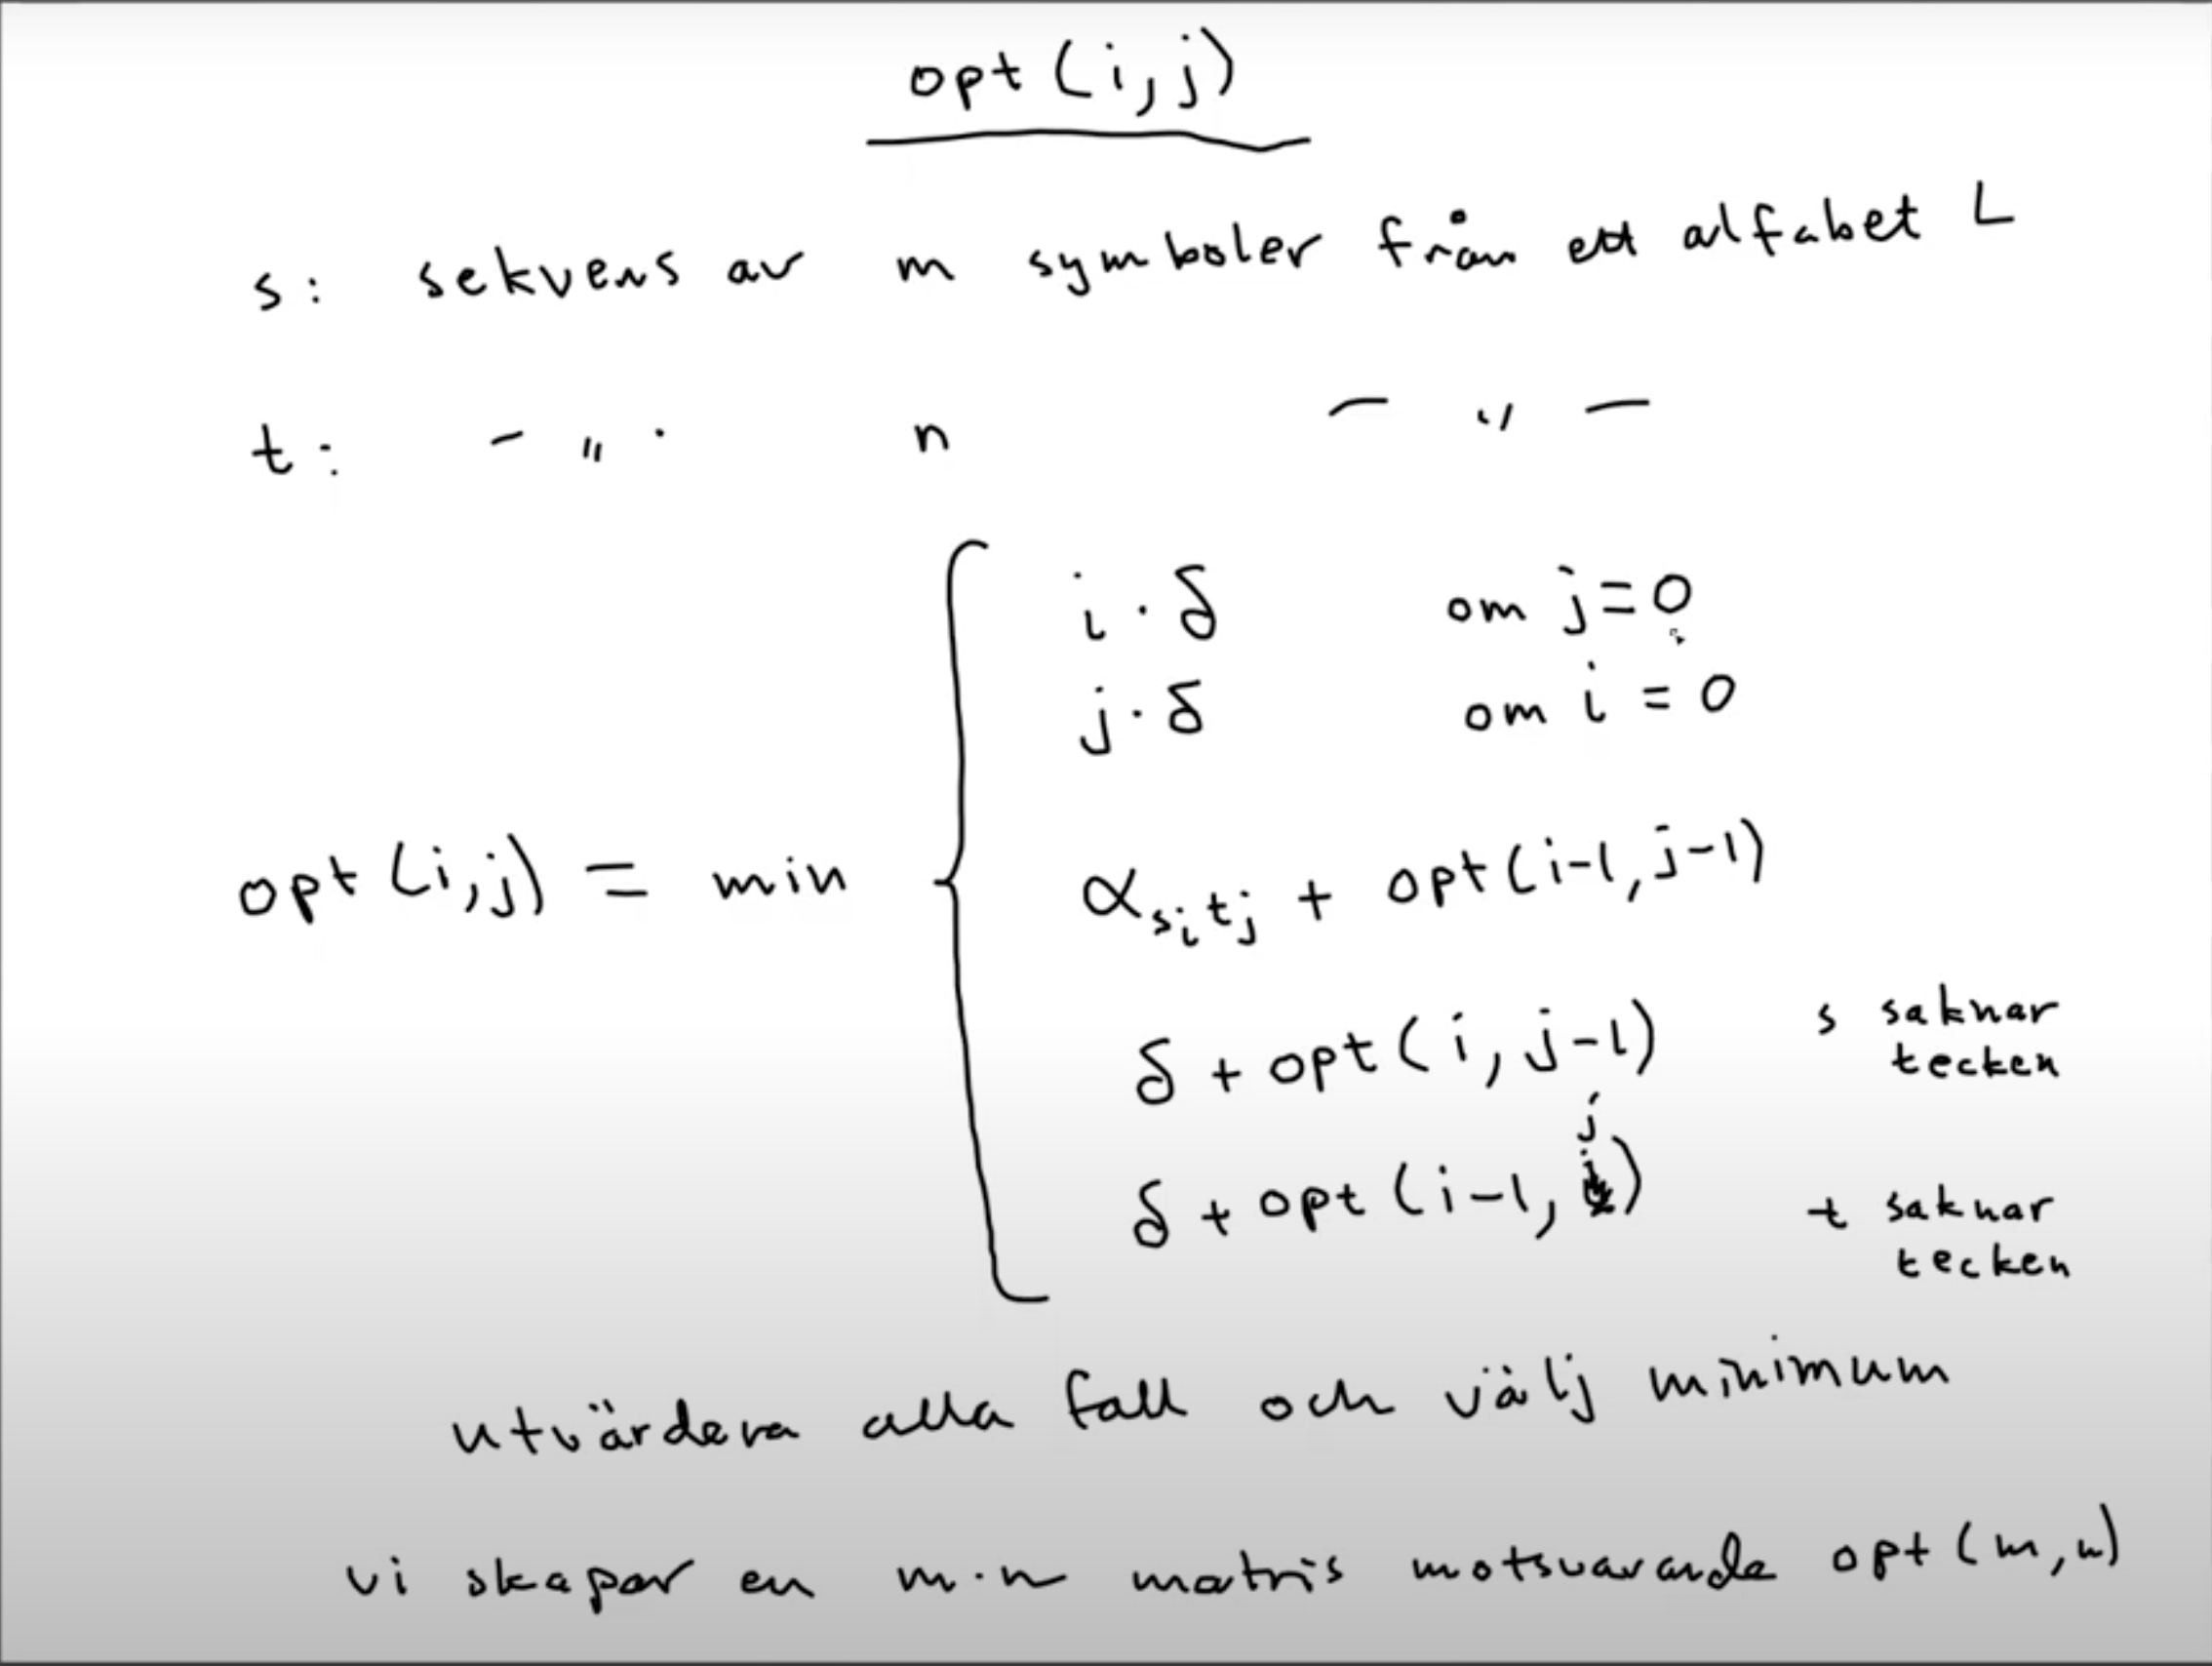 opt(i,j)
s: sekvens av m symboler från ett alfabet L
t: - " - n - " -
i · δ om j=0
j · δ om i = 0
opt(i,j) = min
α_{s_i t_j} + opt(i-1,j-1)
δ + opt(i, j-1) s saknar tecken
δ + opt(i-1, j) t saknar tecken
utvärdera alla fall och välj minimum
vi skapar en m·n matris motsvarande opt(m,n)